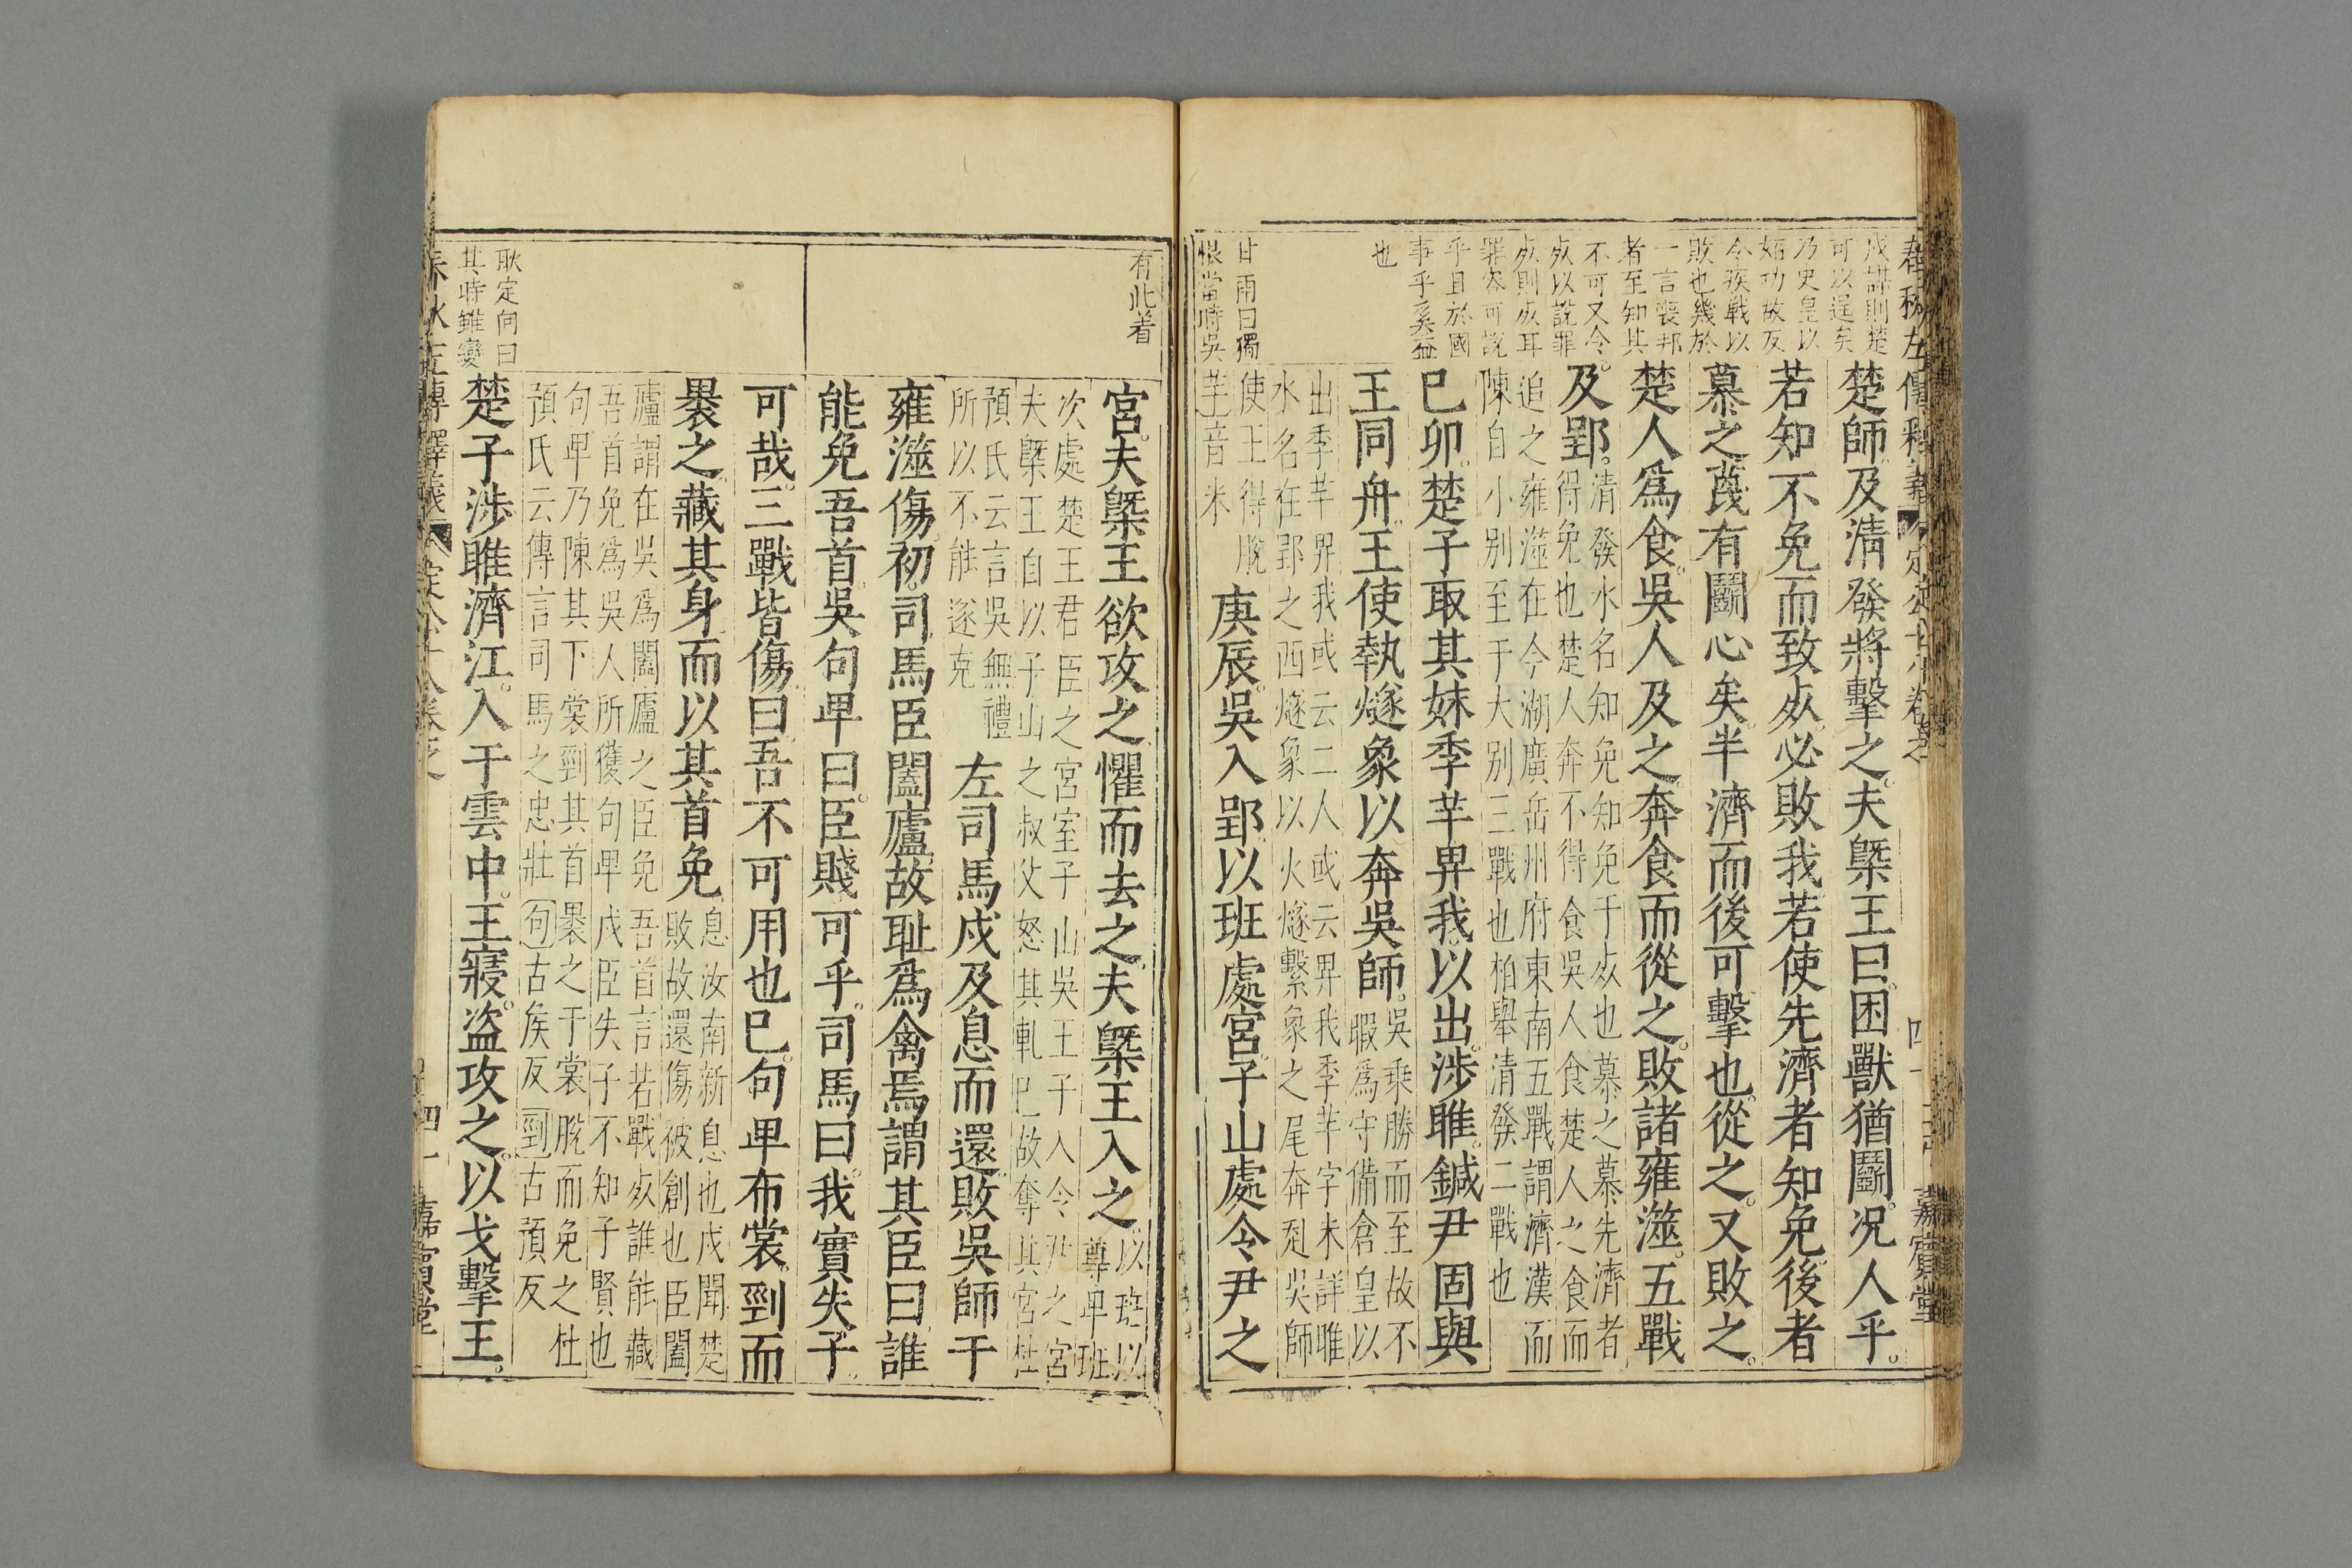 春秋左傳釋義
嘉賓堂
戍謀則楚
可以逞矣
乃史皇以
妬功故反
令疾戰以
敗也幾於
一言喪邦
者至知其
不可又令
奴以說罪
奴則奴耳
罪容可說
乎且於國
事乎奚益
也
甘雨曰獨
恨當時吳
楚師及清發將擊之夫槩王曰困獸猶鬬况人乎
若知不免而致奴必敗我若使先濟者知免後者
慕之蔑有鬬心矣半濟而後可擊也從之又敗之
楚人爲食吳人及之奔食而從之敗諸雍澨五戰
及郢
清發水名知免知免于奴也慕之慕先濟者
得免也楚人奔不得食吳人食楚人之食而
追之雍澨在今湖廣岳州府東南五戰謂濟漢而
陳自小别至于大别三戰也柏舉清發二戰也
巳卯楚子取其妹季芊畀我以出涉睢鍼尹固與
王同舟王使執燧象以奔吳師
吳乘勝而至故不
暇爲守備倉皇以
出季芊畀我或云二人或云畀我季芊字未詳睢
水名在郢之西燧象以火燧繫象之尾奔剋吳師
使王得脫
芊音米
庚辰吳入郢以班處宮子山處令尹之
有此着
宮夫槩王欲攻之懼而去之夫槩王入之
以班以
尊卑班
次處楚王君臣之宮室子山吳王子入令尹之宮
夫槩王自以子山之叔父怒其軋巳故奪其宮杜
預氏云言吳無禮
所以不能遂克
左司馬戍及息而還敗吳師于
雍澨傷初司馬臣闔廬故耻爲禽焉謂其臣曰誰
能免吾首吳句卑曰臣賤可乎司馬曰我實失子
可哉三戰皆傷曰吾不可用也巳句卑布裳剄而
褁之藏其身而以其首免
息汝南新息也戍聞楚
敗故還傷被創也臣闔
廬謂在吳爲闔廬之臣免吾首言若戰奴誰能藏
吾首免爲吳人所獲句卑戍臣失子不知子賢也
句卑乃陳其下裳剄其首褁之于裳脫而免之杜
預氏云傳言司馬之忠壯句古矦反剄古預反
耿定向曰
其時雖變
楚子涉睢濟江入于雲中王寢盜攻之以戈擊王
春秋左傳釋義
四一
嘉賓堂